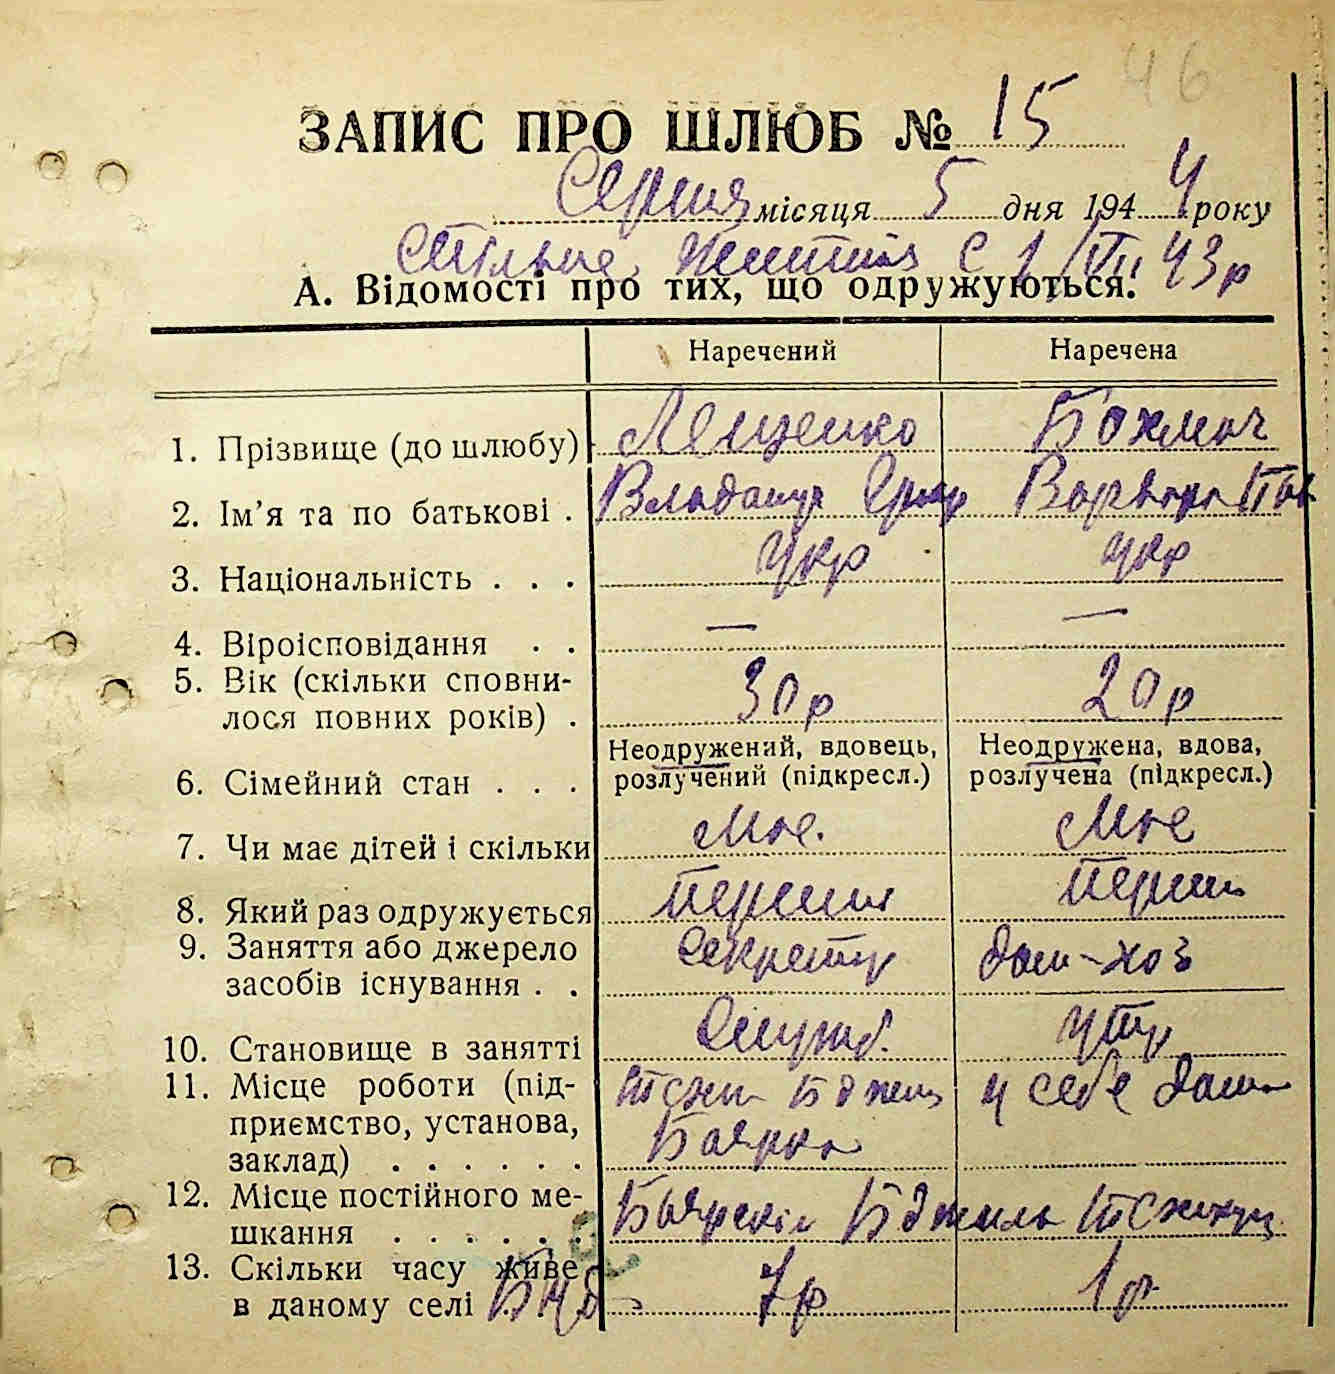 46
ЗАПИС ПРО ШЛЮБ № 15
Серпня місяця 5 дня 1944 року
Спільне життя с 1/VII 43 р
А. Відомості про тих, що одружуються.
Наречений Наречена
1. Прізвище (до шлюбу) Лещенко Бохмач
2. Ім’я та по батькові . Володимир Варвара
3. Національність . . . Укр Укр
4. Віроісповідання . . — —
5. Вік (скільки сповни-
лося повних років) . 30 р 20 р
Неодружений, вдовець, Неодружена, вдова,
6. Сімейний стан . . . розлучений (підкресл.) розлучена (підкресл.)
7. Чи має дітей і скільки Має. Має
8. Який раз одружується перший перший
9. Заняття або джерело
засобів існування . . Секретар дом-хоз
10. Становище в занятті Службов. утр
11. Місце роботи (під-
приємство, установа, у себе дома
заклад) . . . . . . Боярка
12. Місце постійного ме-
шкання . . . . . .
13. Скільки часу живе
в даному селі 7 р 1 р